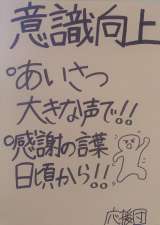 意識向上
°あいさつ
大きな声で!!
°感謝の言葉
日頃から!!
応援団